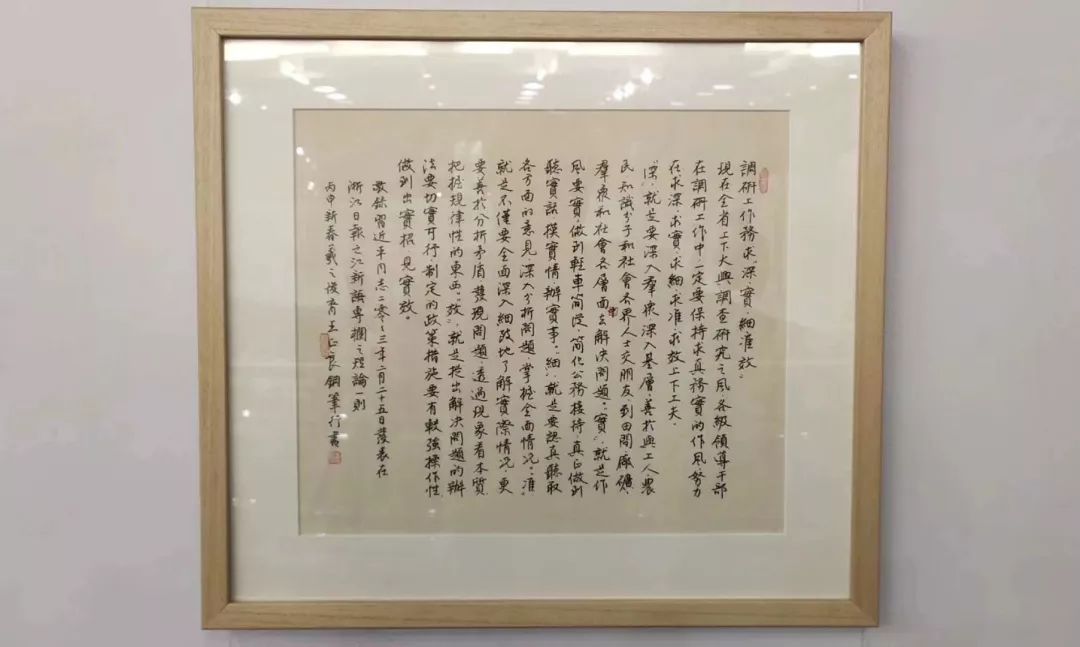 調研工作務求"深、實、細、準、效"
現在全省上下大興調查研究之風,各級領導干部
在調研工作中,一定要保持求真務實的作風,努力
在求深、求實、求細、求准、求效上下工夫。
"深",就是要深入羣衆,深入基層,善於與工人、農
民、知識分子和社會各界人士交朋友,到田間、廠礦、
羣衆和社會各層面去解決問題。"實",就是作
風要實,做到輕車簡從,简化公務接待,真正做到
聽實話、摸實情、辦實事。"細",就是要認真聽取
各方面的意見,深入分析問題,掌握全面情况。"准",
就是不僅要全面深入細致地了解實際情况,更
要善於分析矛盾、發現問題,透過現象看本質,
把握規律性的東西。"效",就是提出解決問題的辦
法要切實可行,制定的政策措施要有較強操作性,
做到出實招、見實效。
敬録習近平同志二零零三年二月二十五日發表在
浙江日報之江新語專欄之理論一則
丙申新春羲之後裔王正良鋼筆行書